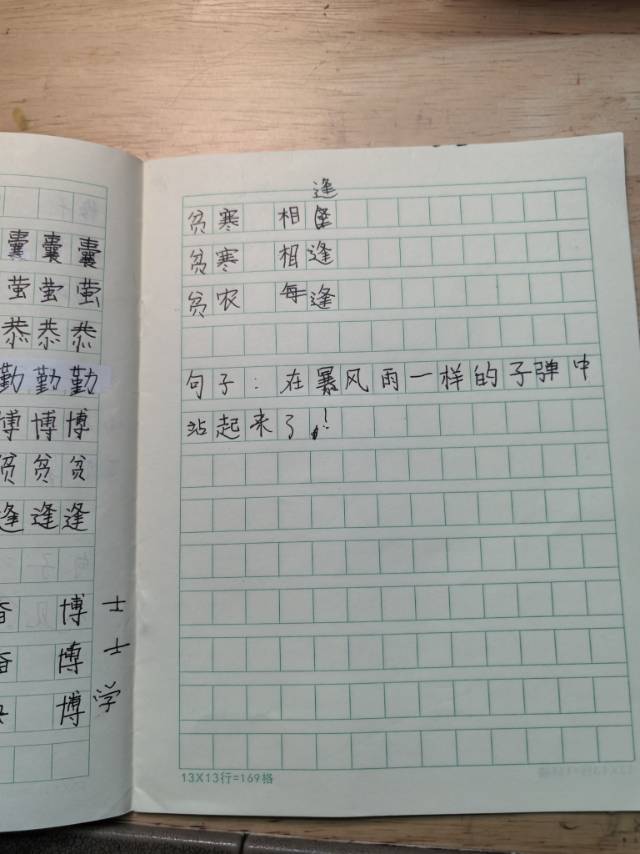 囊囊囊
萤萤萤
恭恭恭
勤勤勤
博博博
贫贫贫
逢逢逢
博士
博士
博学
逢
贫寒 相
贫寒 相逢
贫农 每逢
句子：在暴风雨一样的子弹中
站起来了！
13X13行=169格